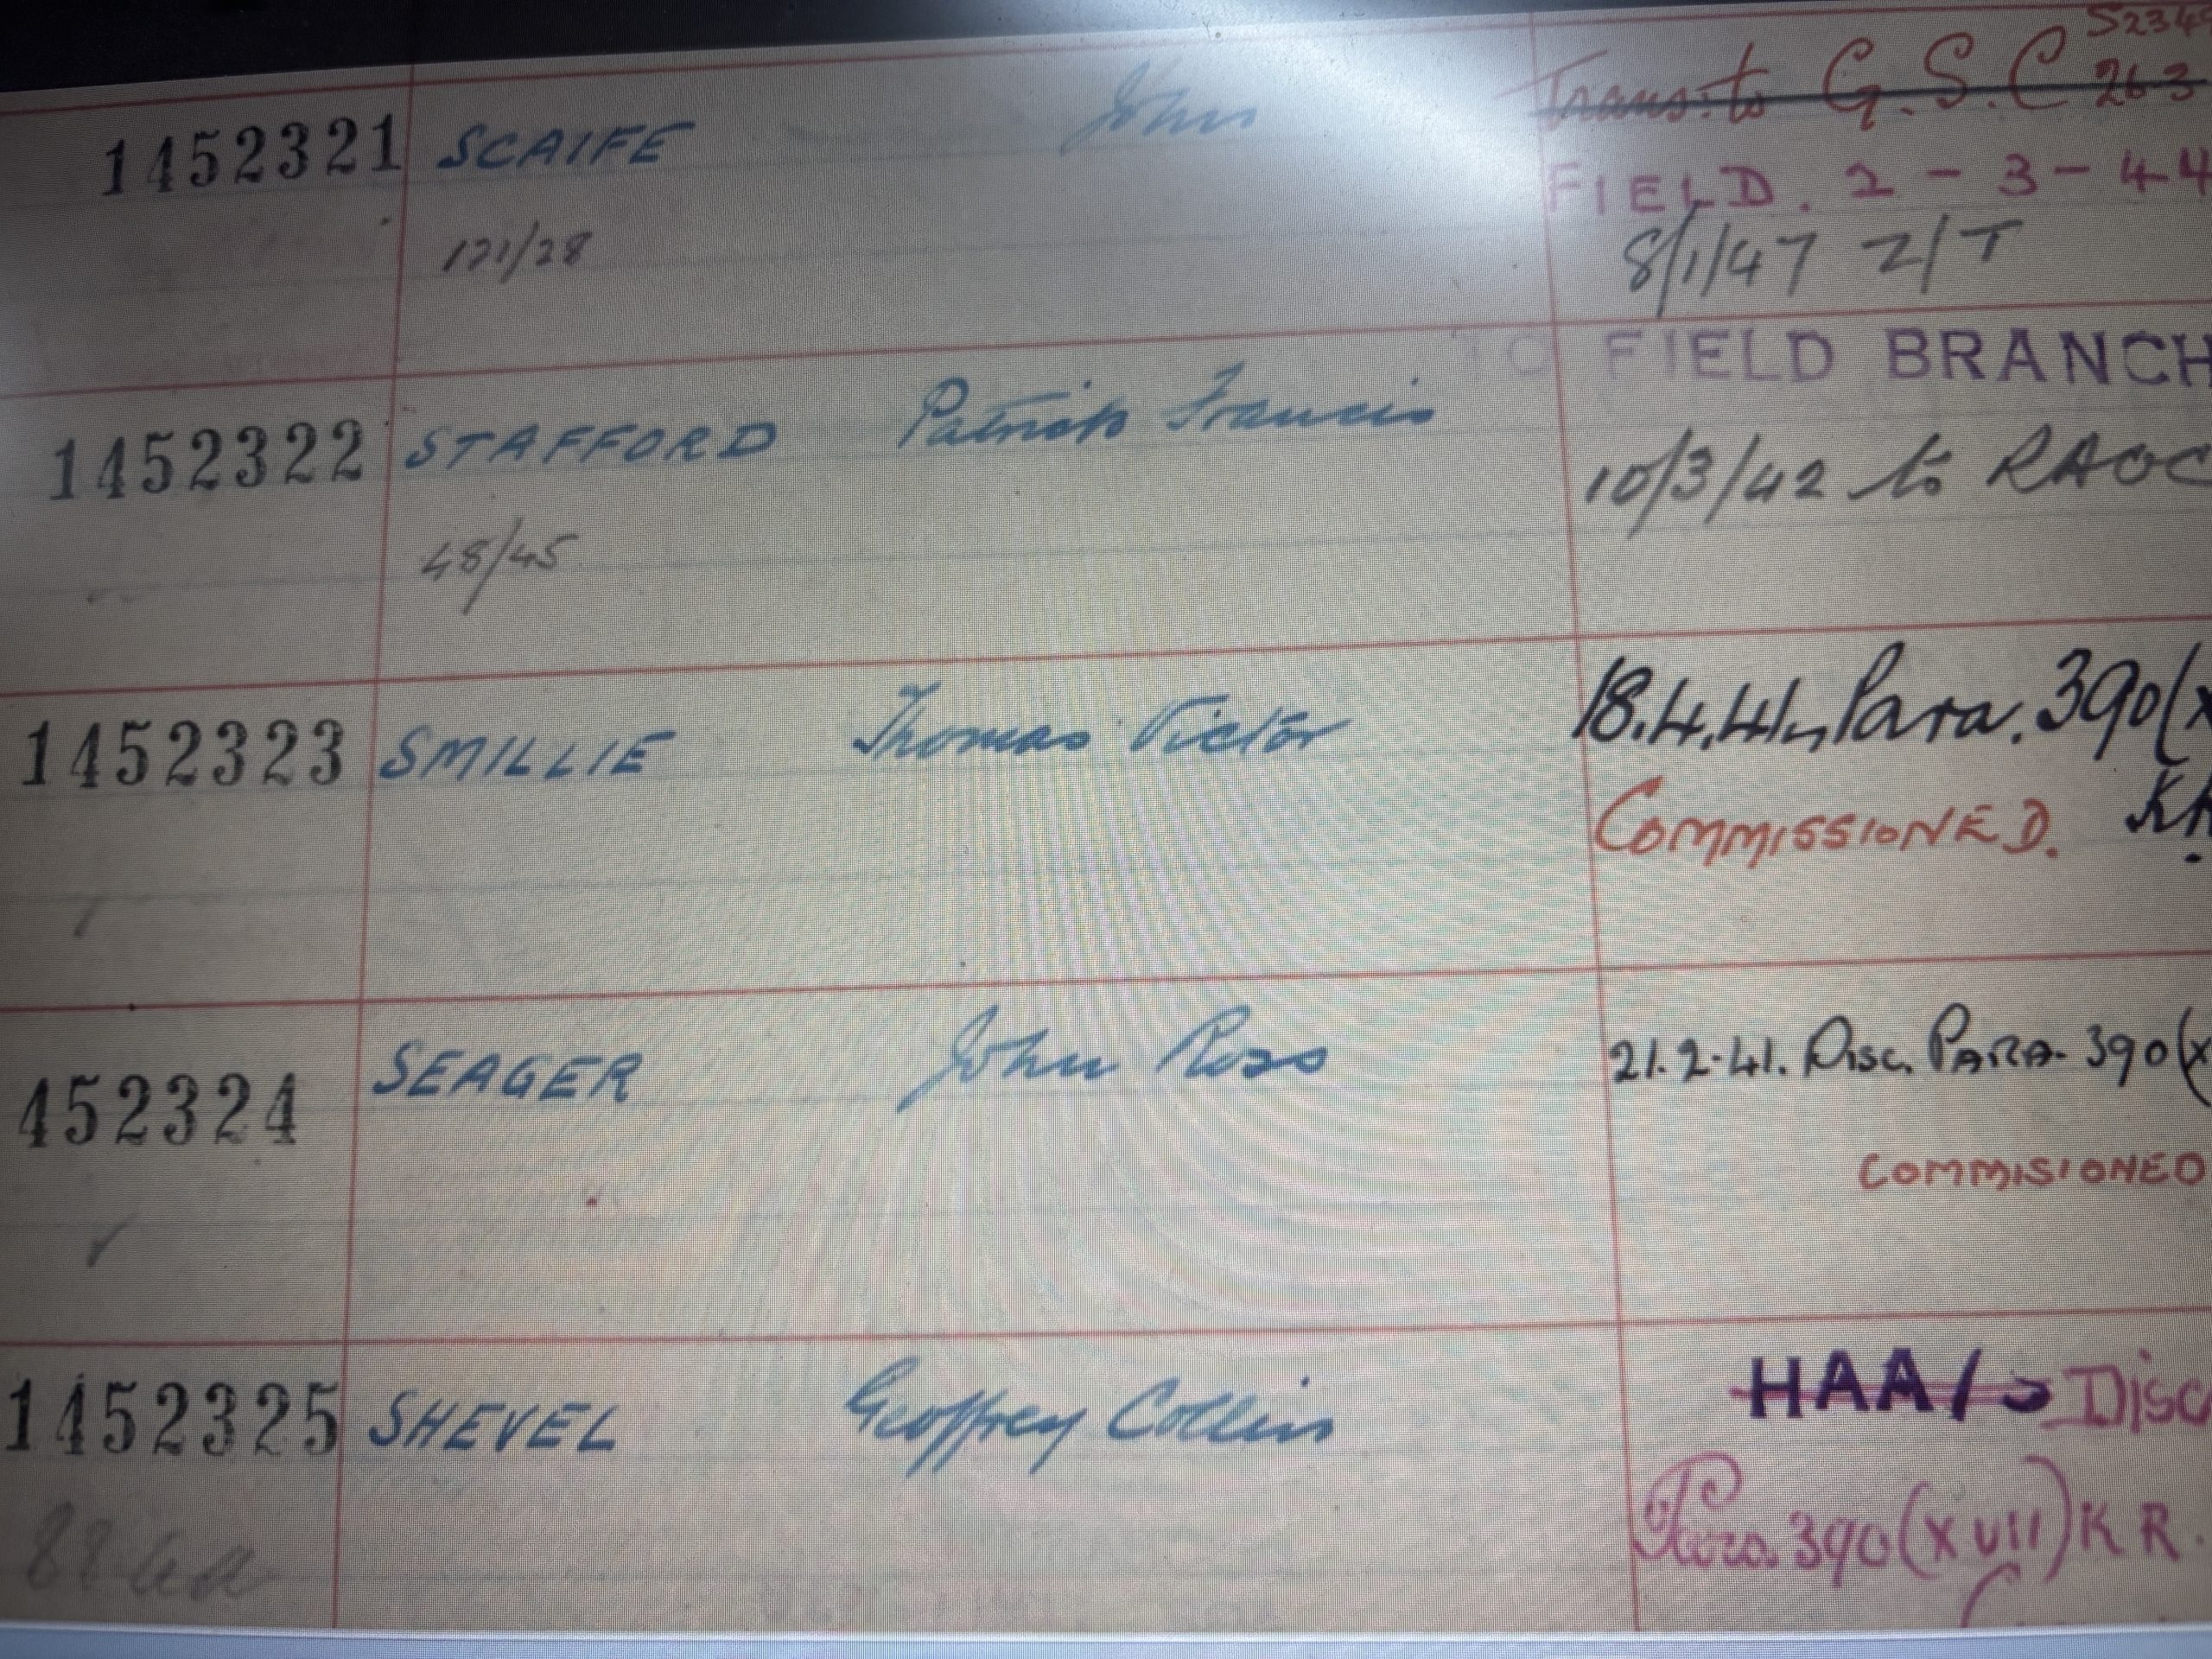 1452321 SCAIFE John Trans. to G.S.C 26.3
FIELD. 2-3-44
121/28 8/1/47 Z/T
TO FIELD BRANCH
1452322 STAFFORD Patrick Francis
10/3/42 to RAOC
48/45
1452323 SMILLIE Thomas Victor 18.4.41, Para. 390(x
COMMISSIONED.
452324 SEAGER John Ross 21.2.41. Disc. PARA. 390(x
COMMISIONED
1452325 SHEVEL Geoffrey Collin HAA/ Disc
Para 390(XVII) KR.